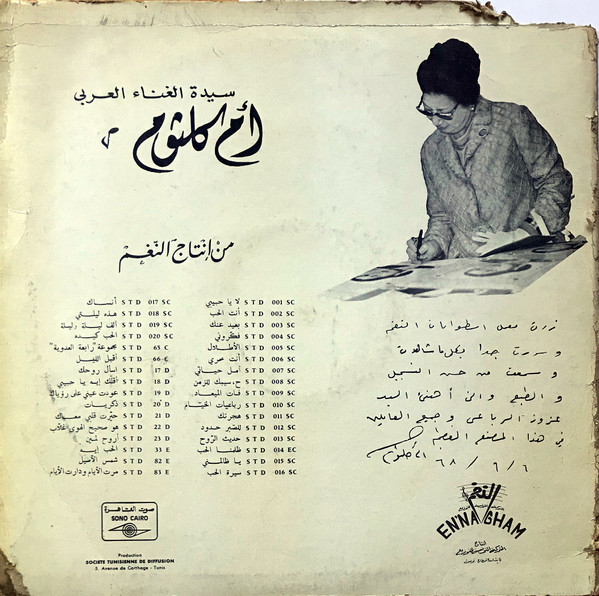 سيدة الغناء العربي
أم كلثوم
من إنتاج النغم
لا يا حبيبي STD 001 SC
أنت الحب STD 002 SC
بعيد عنك STD 003 SC
فكروني STD 004 SC
الأطلال STD 005 SC
أنت عمري STD 006 SC
أمل حياتي STD 007 SC
ح. سيبك للزمن STD 008 SC
فات الميعاد STD 009 SC
رباعيات الخيام STD 010 SC
هجرتك STD 011 SC
للصبر حدود STD 012 SC
حديث الروح STD 013 SC
ظلمنا الحب STD 014 EC
يا ظالمني STD 015 SC
سيرة الحب STD 016 SC
أنساك STD 017 SC
هذه ليلتي STD 018 SC
ألف ليلة وليلة STD 019 SC
الحب كده STD 020 SC
مجموعة "رابعة العدوية" 65 C
أقبل الليل STD 66 C
اسأل روحك STD 17 D
أقلك إيه يا حبيبي STD 18 D
عودت عيني على رؤياك STD 19 D
ذكريات STD 20 D
حيرت قلبي معاك STD 21 D
هو صحيح الهوى الغلاب STD 22 D
أروح لمين STD 23 D
الحب إيه STD 33 E
شمس الأصيل STD 82 E
مرت الأيام ودارت الأيام STD 83 E
زرت معمل اسطوانات النغم
وسررت جدا بكل ما شاهدت
وسمعت من حسن التسجيل
والطبع وانى أهنئ السيد
عزوز الرباعى وجميع العاملين
في هذا المصنع العظيم
أم كلثوم ٦ / ٦ / ٦٨
صوت القاهرة
SONO CAIRO
Production
SOCIÉTÉ TUNISIENNE DE DIFFUSION
5, Avenue de Carthage - Tunis
النغم
EN'NAGHAM